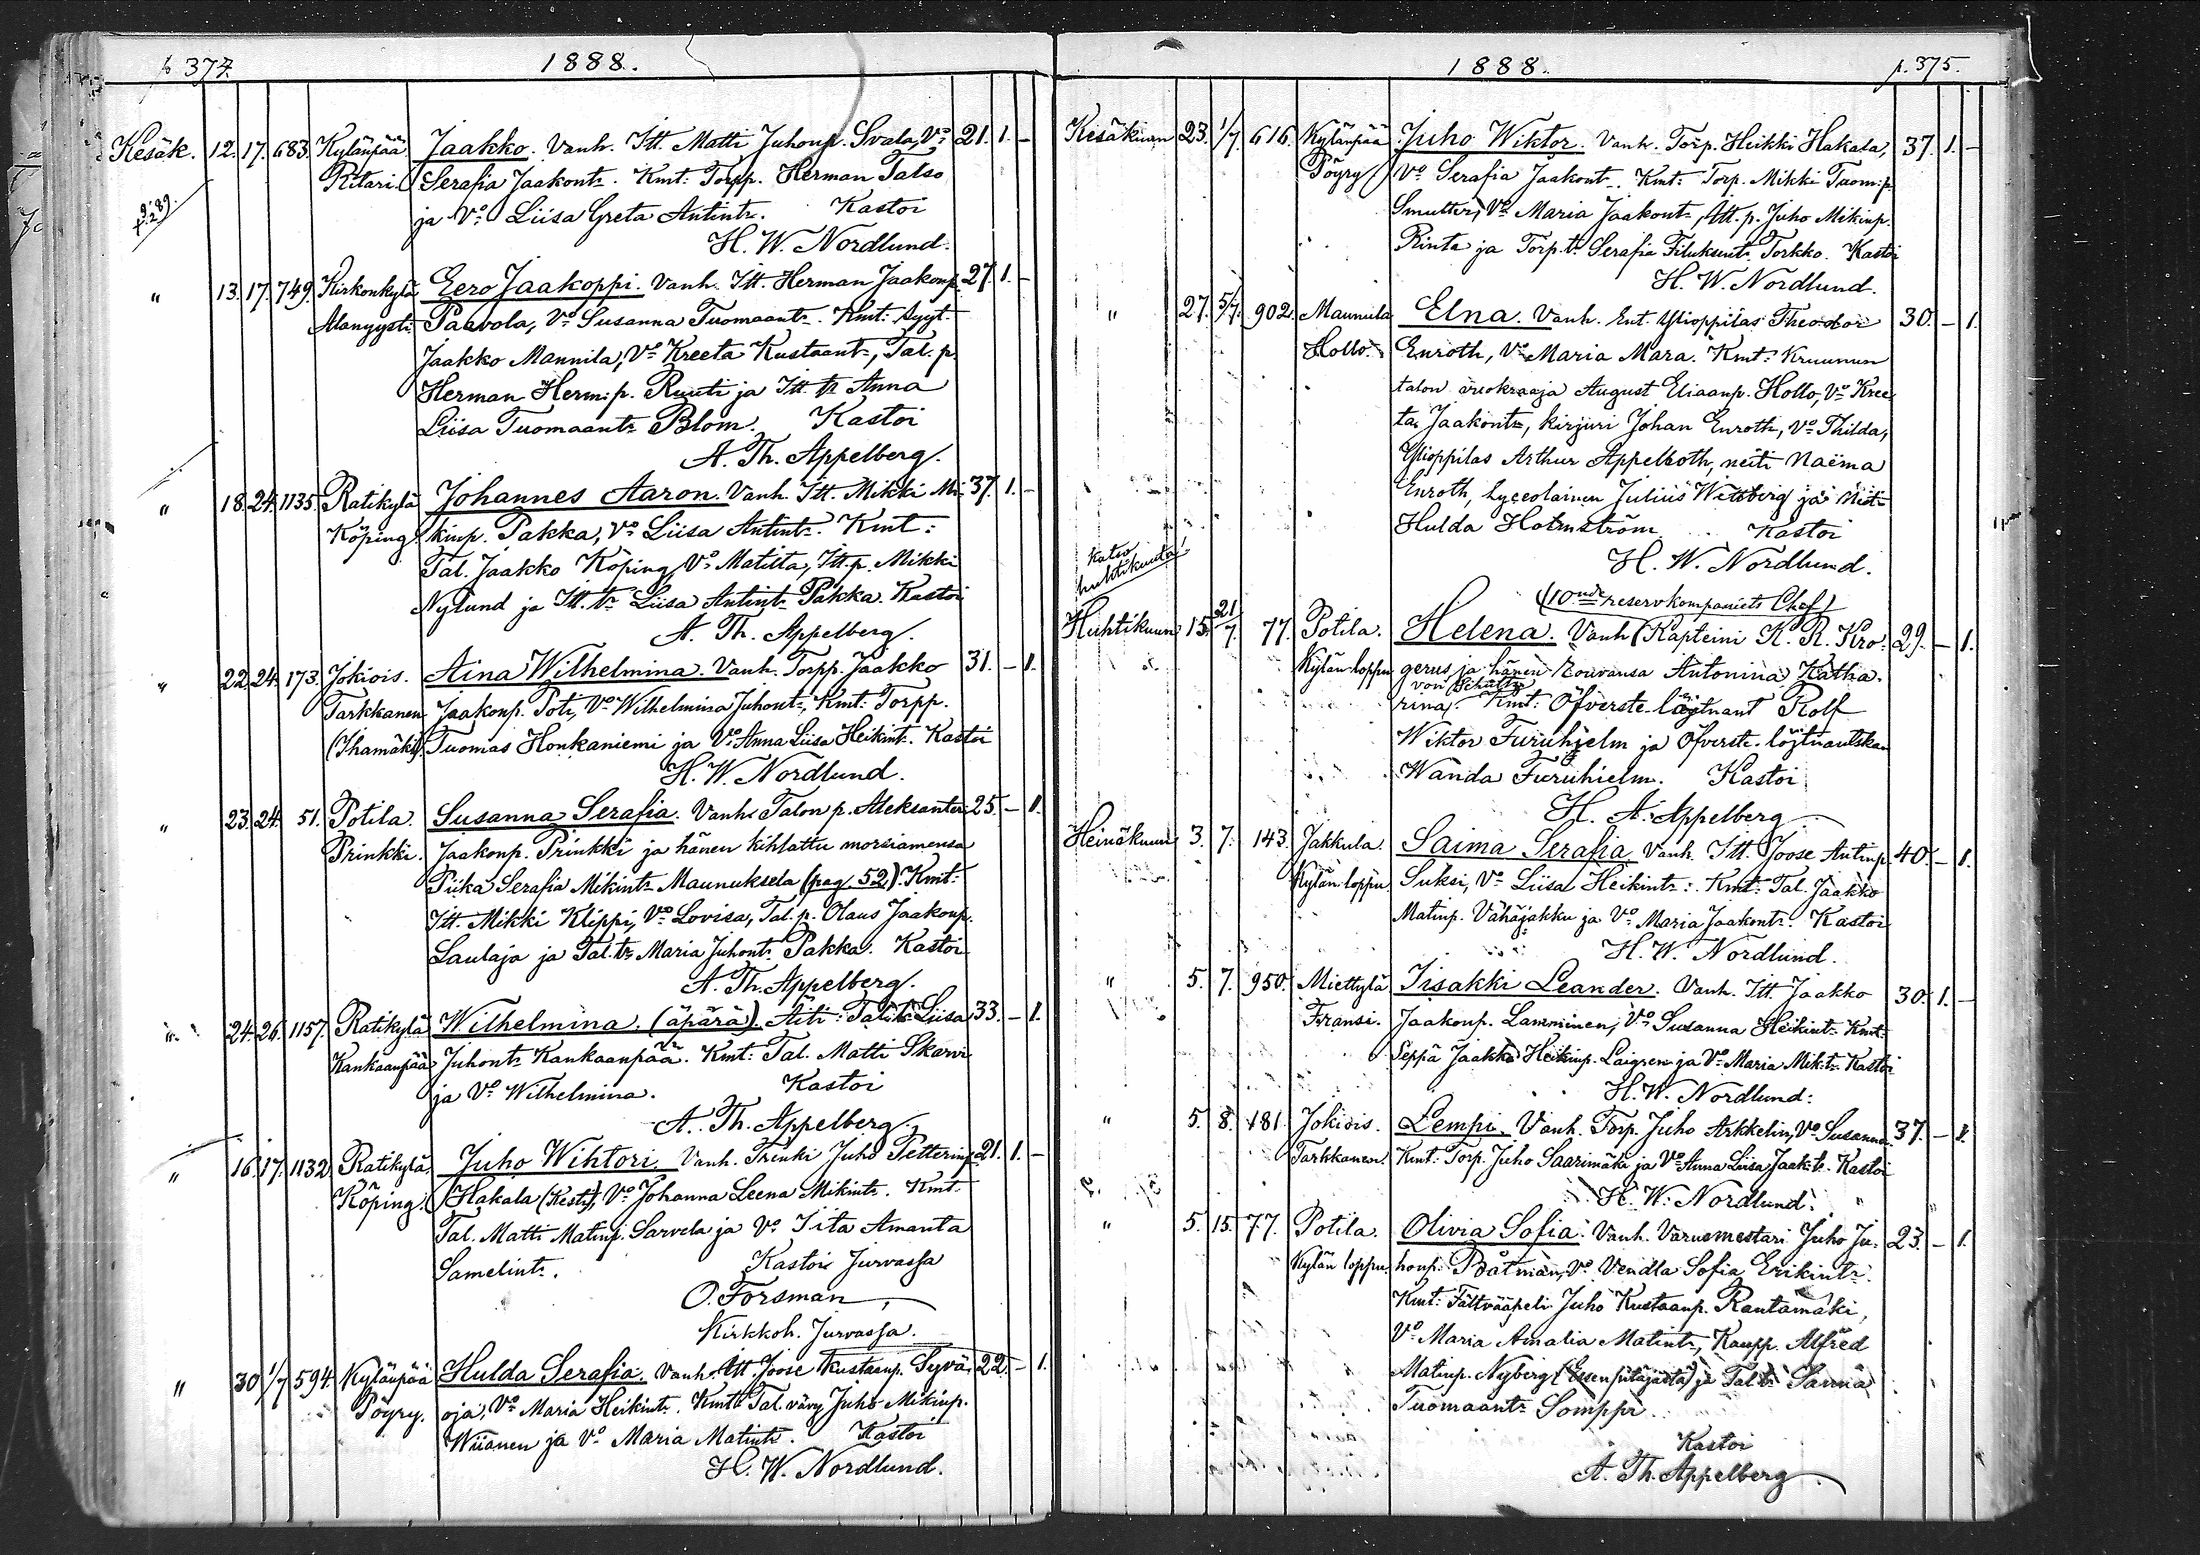 p. 374. 1888.
Kesäk. 12. 17. 683. Kylänpää Jaakko. Vanh. Itt. Matti Juhonp. Svala, Vo 21. 1. –
Ritari. Serafia Jaakontr. Kmt: Torpp. Herman Talso
ja Vo Liisa Greta Antintr. Kastoi
H. W. Nordlund.
" 13. 17. 749. Kirkonkylä Eero Jaakoppi. Vanh. Itt. Herman Jaakonp. 27. 1. –
Alanyysti Paavola, Vo Susanna Tuomaantr. Kmt: syyt.
Jaakko Mannila, Vo Kreeta Kustaantr, Tal. p.
Herman Herm:p. Ruuti ja Itt. tr Anna
Liisa Tuomaantr Blom. Kastoi
A. Th. Appelberg.
" 18. 24. 1135. Ratikylä Johannes Aaron. Vanh. Itt. Mikki Mi- 37. 1. –
Köping. kinp. Pakka, Vo Liisa Antintr. Kmt:
Tal. Jaakko Köping, Vo Matilta, Itt. p. Mikki
Nylund ja Itt. tr Liisa Antintr Pakka. Kastoi
A. Th. Appelberg.
" 22. 24. 173. Jokiois. Aina Wilhelmina. Vanh. Torpp. Jaakko 31. – 1.
Tarkkanen Jaakonp. Poti, Vo Wilhelmina Juhontr, Kmt: Torpp.
(Ihamäki). Tuomas Honkaniemi ja Vo Anna Liisa Heikintr. Kastoi
H. W. Nordlund.
" 23. 24. 51. Potila. Susanna Serafia. Vanh. Talon p. Aleksanteri 25. – 1.
Prinkki. Jaakonp. Prinkki ja hänen kihlattu morsiamensa
Piika Serafia Mikintr Maunuksela (pag. 52). Kmt:
Itt. Mikki Klippi, Vo Lovisa, Tal. p. Olaus Jaakonp.
Laulaja ja Tal. tr Maria Juhontr Pakka. Kastoi
A. Th. Appelberg.
" 24. 26. 1157. Ratikylä Wilhelmina. (äpärä). Äiti: Tal. tr Liisa 33. – 1.
Kankaanpää Juhontr Kankaanpää. Kmt: Tal. Matti Skarvi
ja Vo Wilhelmina. Kastoi
A. Th. Appelberg.
" 16. 17. 1132. Ratikylä, Juho Wihtori. Vanh. Trenki Juho Petterinp. 21. 1. –
Köping. Hakala (Kesti), Vo Johanna Leena Mikintr. Kmt.
Tal. Matti Matinp. Sarvela ja Vo Iita Amanta
Samelintr. Kastoi Jurvassa
O. Forsman,
Kirkkoh. Jurvassa.
" 30 1/7 594. Kylänpää Hulda Serafia. Vanh. Itt. Joose Kustaanp. Syvä- 22. – 1.
Pöyry. oja, Vo Maria Heikintr. Kmt: Tal. vävy Juho Mikinp.
Wiianen ja Vo Maria Matintr. Kastoi
H. W. Nordlund.
1888. p. 375.
Kesäkuun 23. 1/7 616. Kylänpää Juho Wiktor. Vanh. Torp. Heikki Hakala, 37. 1. –
Pöyry Vo Serafia Jaakontr. Kmt: Torp. Mikki Tuom:p.
Smulter, Vo Maria Jaakontr, Itt. p. Juho Mikinp.
Rinta ja Torp. tr Serafia Filuksentr Torkko. Kastoi
H. W. Nordlund.
" 27. 5/7. 902. Maunula Elna. Vanh. Ent. Ylioppilas Theodor 30. – 1.
Hollo. Enroth, Vo Maria Mara. Kmt: Kruunun
talon vuokraaja August Eliaanp. Hollo, Vo Kree-
ta Jaakontr, kirjuri Johan Enroth, Vo Thilda,
Ylioppilas Arthur Appelroth, neiti Naëma
Enroth, Lyceolainen Julius Wittberg ja Neiti
Hulda Holmström. Kastoi
H. W. Nordlund.
Katso
huhtikuuta!
(10nde reservkompaniets Chef)
Huhtikuun 15. 21/7. 77. Potila. Helena. Vanh. (Kapteini K. R. Kro- 29. – 1.
Kylän loppu gerus ja hänen Rouvansa Antonina Katha-
von Schultz
rina. Kmt: Öfverste-löjtnant Rolf
Wiktor Furuhjelm ja Öfverste-löjtnantskan
Wanda Furuhjelm. Kastoi
H. A. Appelberg
Heinäkuun 3. 7. 143. Jakkula. Saima Serafia. Vanh. Itt. Joose Antinp. 40. – 1.
Kylän loppu Suksi, Vo Liisa Heikintr: Kmt: Tal. Jaakko
Matinp. Vähäjakku ja Vo Maria Jaakontr. Kastoi
H. W. Nordlund.
" 5. 7. 950. Miettylä Iisakki Leander. Vanh. Itt. Jaakko 30. 1. –
Fransi. Jaakonp. Lamminen, Vo Susanna Heikintr. Kmt:
Seppä Jaakko Heikinp. Laigren ja Vo Maria Mik:tr. Kastoi
H. W. Nordlund.
" 5. 8. 181. Jokiois. Lempi. Vanh. Torp. Juho Arkkelin, Vo Susanna 37. – 1.
Tarkkanen. Kmt: Torp. Juho Saarimäki ja Vo Anna Liisa Jaak:tr. Kastoi
H. W. Nordlund.
" 5. 15. 77. Potila. Olivia Sofia. Vanh. Varusmestari Juho Ju- 23. – 1.
Kylän loppu. honp. Båtman, Vo Vendla Sofia Erikintr.
Kmt: Fältvääpeli Juho Kustaanp. Rantamäki,
Vo Maria Amalia Matintr, Kaupp. Alfred
Matinp. Nyberg ja Tal. tr Sanna
Tuomaantr Somppi.
Kastoi
A. Th. Appelberg